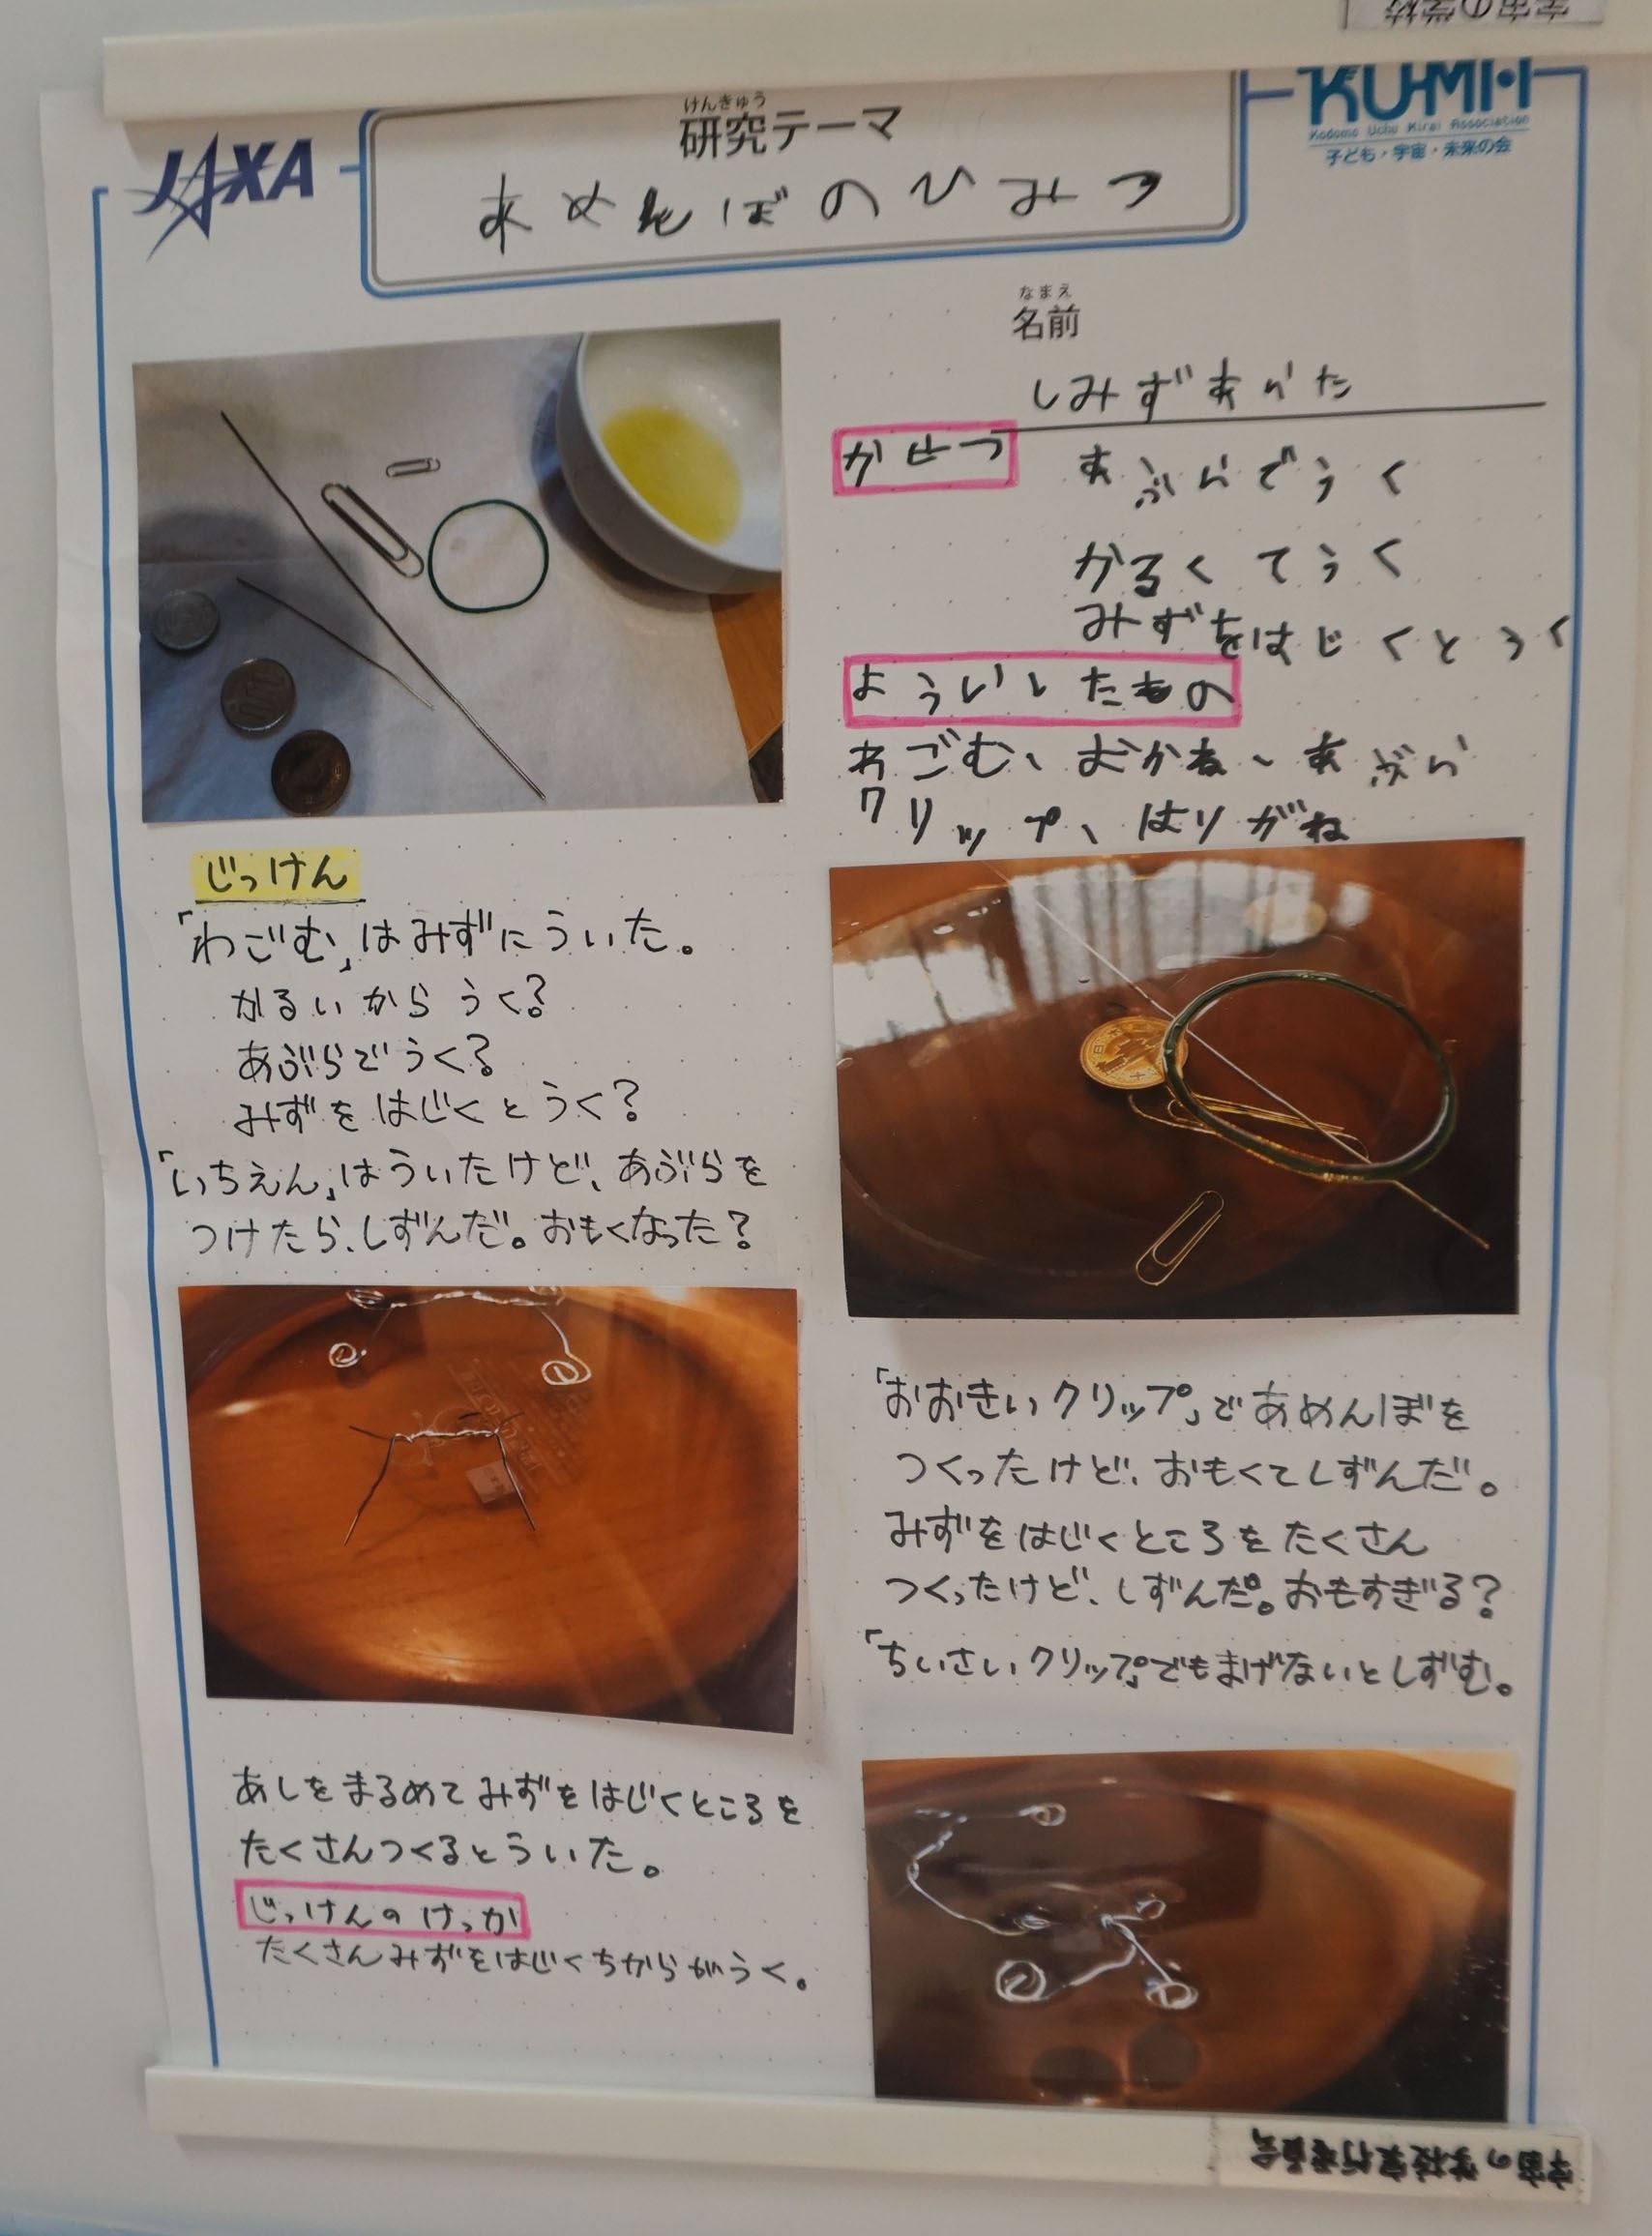 宇宙の学校
JAXA
けんきゅう
研究テーマ
あめんぼのひみつ
KU-MA
Kodomo Uchu Mirai Association
子ども・宇宙・未来の会
なまえ
名前
しみず
かせつ
あぶらでうく
かるくてうく
みずをはじくとうく
よういしたもの
わごむ、おかね、あぶら
クリップ、はりがね
じっけん
「わごむ」はみずにういた。
かるいからうく?
あぶらでうく?
みずをはじくとうく?
「いちえん」はういたけど、あぶらを
つけたら、しずんだ。おもくなった?
「おおきいクリップ」であめんぼを
つくったけど、おもくてしずんだ。
みずをはじくところをたくさん
つくったけど、しずんだ。おもすぎる?
「ちいさいクリップ」でもまげないとしずむ。
あしをまるめてみずをはじくところを
たくさんつくるとういた。
じっけんのけっか
たくさんみずをはじくちからがうく。
宇宙の学校実行委員会